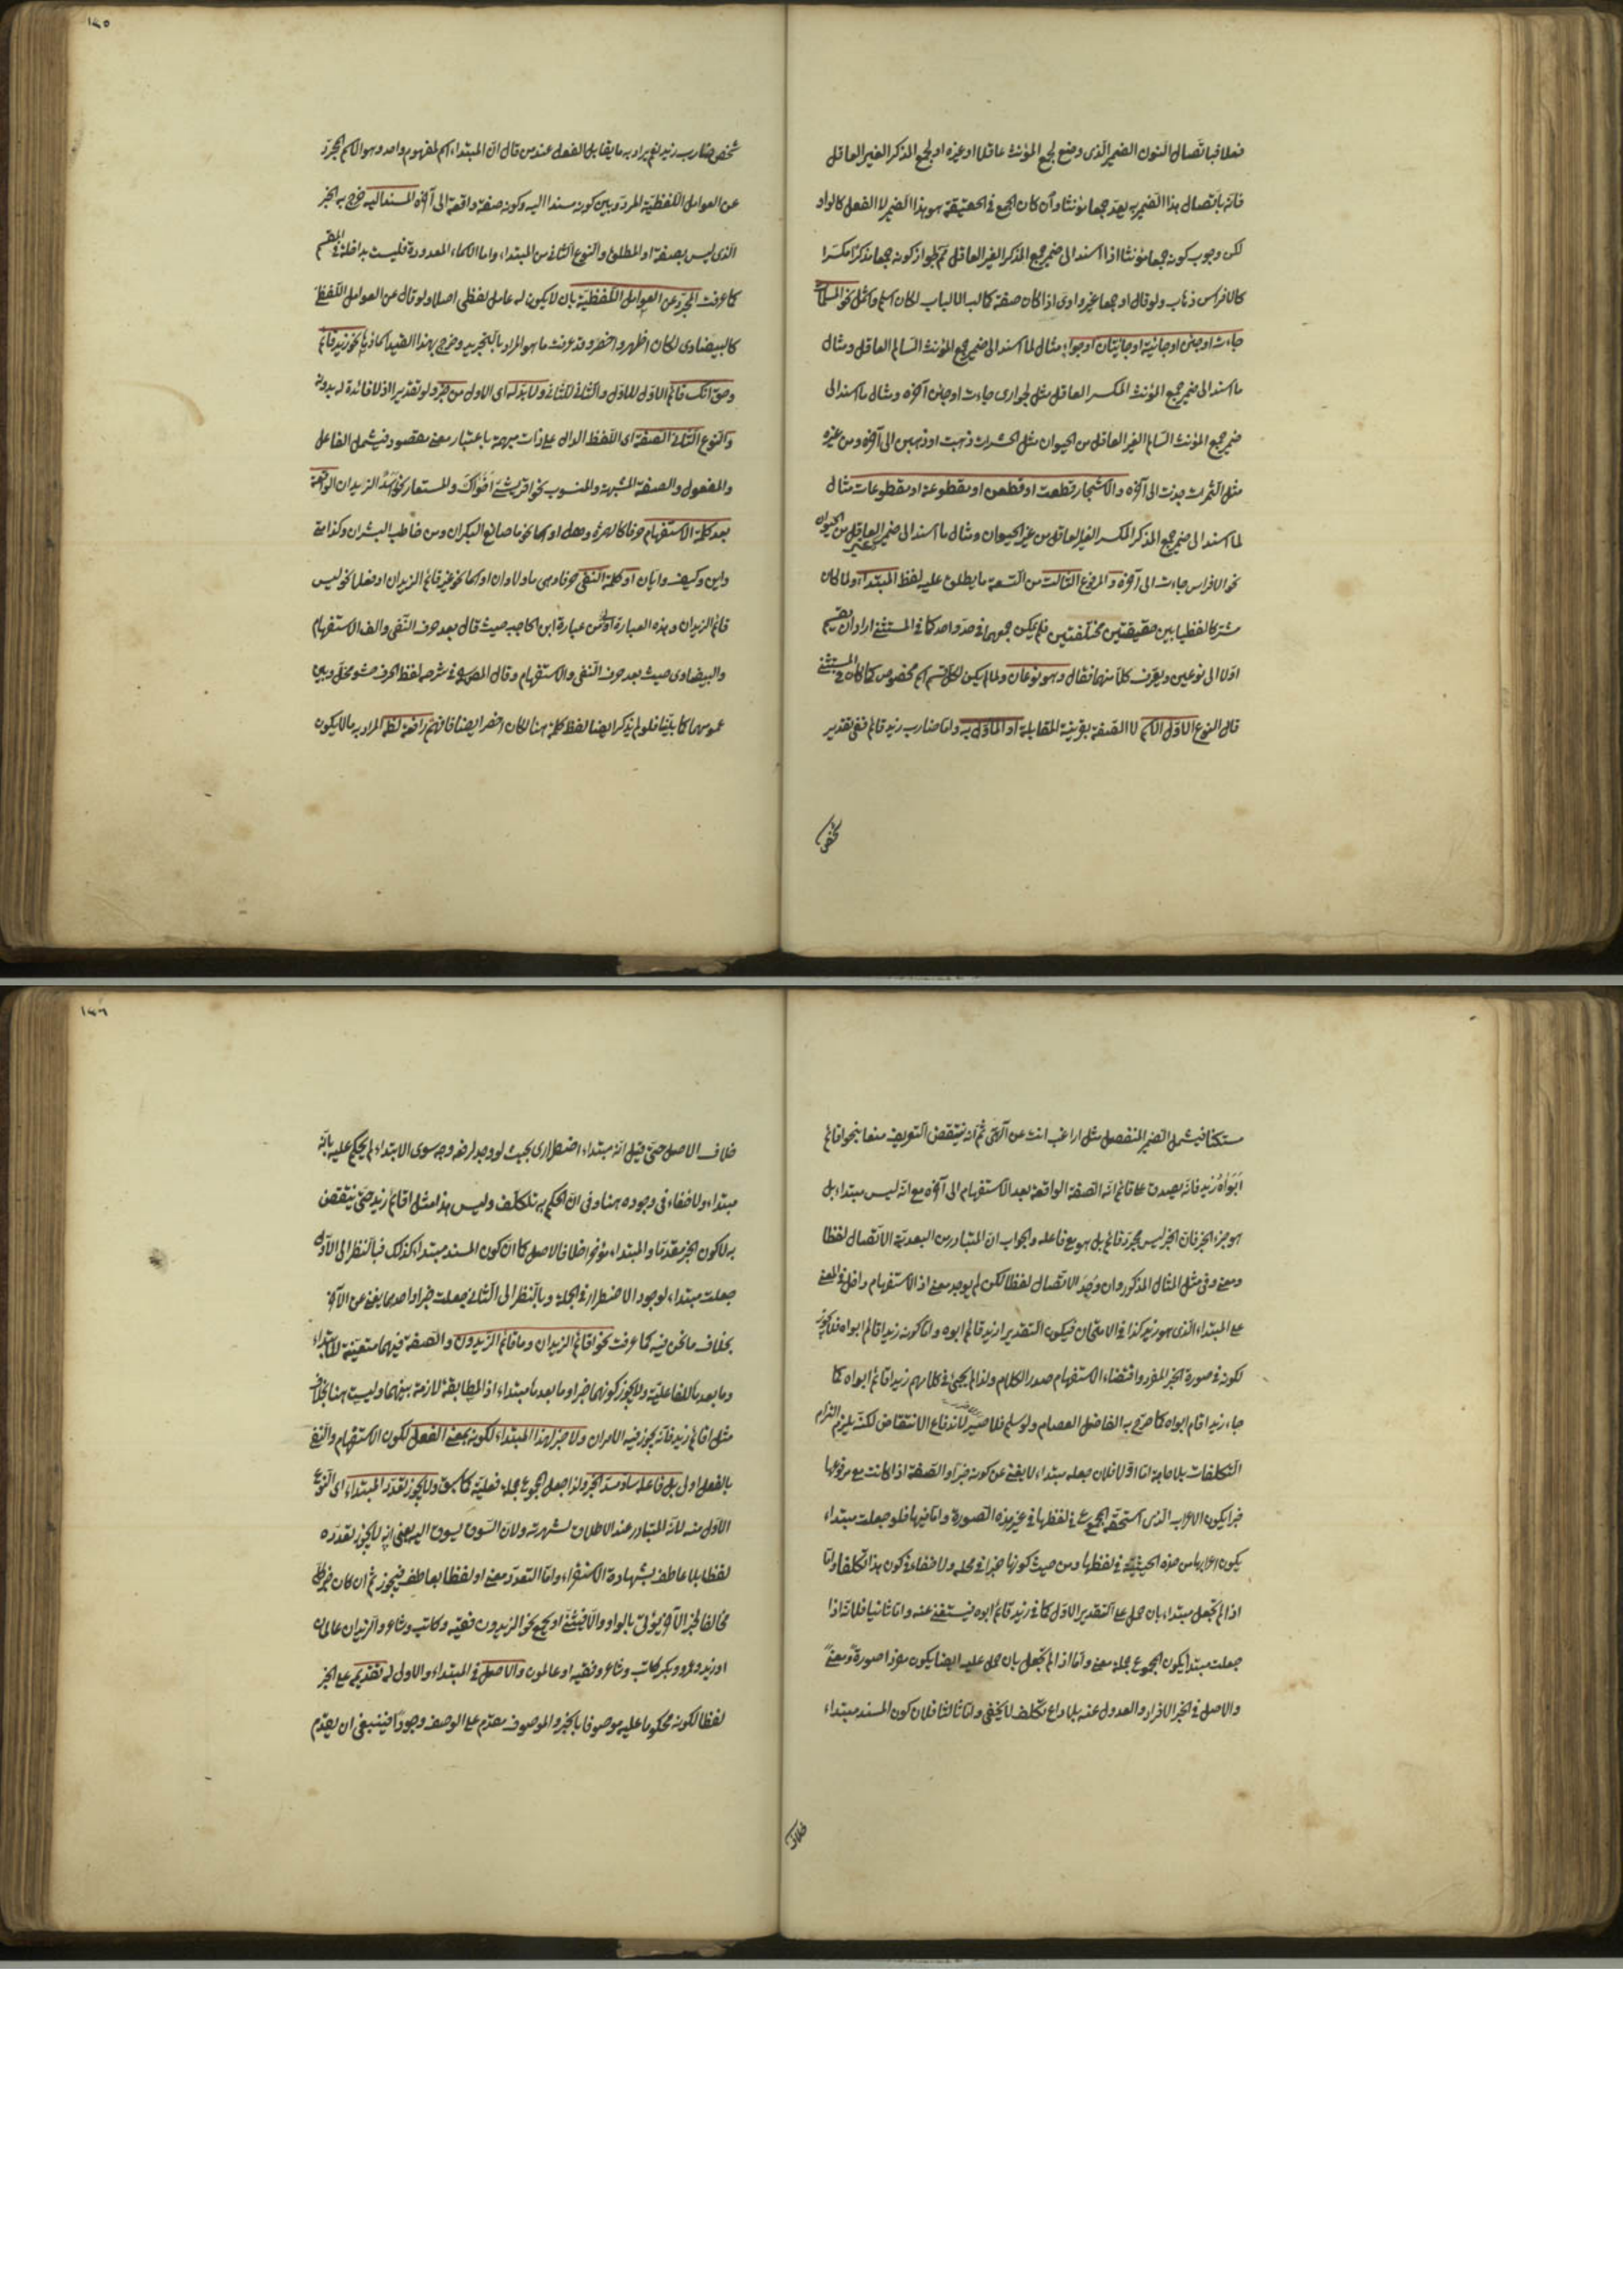 فعلا فباتصال النون الضمير الذى وضع لجمع المؤنث عاقلا او غيره او لجمع المذكر الغير العاقل
فانه باتصال هذا الضمير به يعد جمعا مؤنثا وان كان الجمع فى الحقيقة هو هذا الضمير لا الفعل كالواو
لكن وجوب كونه جمعا مؤنثا اذا اسند الى ضمير جمع المذكر الغير العاقل ثم لجواز كونه جمعا مذكرا مكسرا
كالافراس ذهاب ولو قال او جمعا غير واوى اذا كان صفة كالباب لكان اسلم واشمل نحو المسلمات
جاءت او جئن او جائية او جائيتان او جواء مثال لما اسند الى ضمير جمع المؤنث السالم العاقل ومثال
ما اسند الى ضمير جمع المؤنث المكسر العاقل مثل الجوارى جاءت او جئن آخره ومثال ما اسند الى
ضمير جمع المؤنث السالم الغير العاقل من الحيوان مثل الحشرات ذهبت او ذهبن الى آخره ومن غيره
مثل الثمرات الى آخره والاشجار قطعت او قطعن او مقطوعة او مقطوعات مثال
لما اسند الى ضمير جمع المذكر المكسر الغير العاقل من غير الحيوان ومثال ما اسند الى ضمير غير العاقل من الحيوان
نحو الافراس جاءت الى آخره والمرفوع الثالث من التسعة ما يطلق عليه لفظ المبتدأ ولما كان
مشتركا لفظيا بين حقيقتين مختلفتين فلم يمكن جمعهما فى حد واحد كما فى المستثنى اراد ان يقسم
اولا الى نوعين ويعرف كلا منهما فقال وهو نوعان ولما لم يكن لكل قسم اسم مخصوص كما كان فى المستثنى
قال النوع الاول الاسم لا الصفة بقرينة المقابلة او المأول به واما ضارب زيد قائم ففى تقدير
شخص
١٣٥
شخص ضارب زيد نعم يراد به ما يقابل الفعل عند من قال ان المبتداء اسم لمفهوم واحد وهو الاسم المجرد
عن العوامل اللفظية المردد بين كونه مسندا اليه وكونه صفة واقعة الى آخره المسند اليه خرج به الخبر
الذى ليس بصفة او المطلق والنوع الثانى من المبتداء واما الاسماء المعدودة فليست بداخلة فى المقسم
كما عرفت المجرد عن العوامل اللفظية بان لا يكون له عامل لفظى اصلا ولو قال عن العوامل اللفظ
كالبيضاوى لكان اظهر واخصر وقد عرفت ما هو المراد بالتجريد وخرج بهذا القيد نحو زيد قائم
وحق انك قائم الاول للاول والثانى للثانى ولا بد له اى الاول من خبر ولو تقديرا اذ لا فائدة له بدونه
والنوع الثانى الصفة اى اللفظ الدال على ذات مبهمة باعتبار معنى مقصود فيشمل الفاعل
والمفعول والصفة المشبهة والمنسوب نحو اقريشى اخواك والمستعار نحو أأسد الزيدان الواقعة
بعد كلمة الاستفهام حرفا كالهمزة وهل او اسما نحو ما صانع البكران ومن خاطب البشران وكذا متى
واين وكيف وايان او كلمة النفى حرفا وهى ما ولا وان او اسما نحو غير قائم الزيدان او فعلا نحو ليس
قائم الزيدان وهذه العبارة اولى من عبارة ابن الحاجب حيث قال بعد حرف النفى والف الاستفهام
والبيضاوى حيث بعد حرف النفى والاستفهام وقال المص فى شرحه لفظ الحرف حشو مخل وبين
عمومهما كما بينا فلو لم يذكر ايضا لفظ كلمة هنا لكان اخصر ايضا فافهم رافعة لظاهر المراد به ما لا يكون
مستكنا فيشمل الضمير المنفصل مثل اراغب انت عن آلهتى ثم انه ينتقض التعريف منعا بنحو اقائم
ابواه زيد فانه يصدق على قائم انه الصفة الواقعة بعد الاستفهام الى آخره مع انه ليس مبتداء بل
هو جزء الخبر فان الخبر ليس مجرد قائم بل هو مع فاعله والجواب ان المتبادر من البعدية الاتصال لفظا
ومعنى وفى مثل المثال المذكور وان وجد الاتصال لفظا لكن لم يوجد معنى اذ الاستفهام داخل فى المعنى
على المبتداء الذى هو زيد كذا فى الامتحان فيكون التقدير ازيد قائم ابوه واما كونه زيد اقائم ابواه
لكونه فى صورة الخبر المفرد واقتضاء الاستفهام صدر الكلام ولذا لم يجئ فى كلامهم زيد اقائم ابواه كما
جاء زيد اقام ابواه كما صرح به الفاضل العصام ولو سلم فلا ضير لاندفاع الانتقاض لكنه يلزم التزام
التكلفات بلا حاجة اما اولا فلان جعله مبتداء لا يغنى عن كونه خبرا والصفة اذا كانت مع مرفوعها
خبرا يكون الاعراب الذى استحقه المجموع فى لفظها فى غير هذه الصورة واما فيها فلو جعلت مبتداء
يكون اعرابها من هذه الحيثية فى لفظها ومن حيث كونها خبرا فى محله ولا خفاء فى كون هذا تكلفا واما
اذا لم تجعل مبتداء بان حمل على التقدير الاول كما فى زيد قائم ابوه فيستغنى عنه واما ثانيا فلانه اذا
جعلت مبتدا يكون المجموع جملة معنى واما اذا لم تجعل بان حمل عليه ايضا يكون مفردا صورة ومعنى
والاصل فى الخبر الافراد والعدول عنه بلا داع تكلف لا يخفى واما ثالثا فلان كون المسند مبتداء
خلاف
١٣٦
خلاف الاصل حتى قيل انه مبتداء اضطرارى بحيث لو وجد لرفعه وجه سوى الابتداء لم يحكم عليه بانه
مبتداء ولا خفاء فى وجوده هنا وفى ان الحكم به تكلف وليس هذا مثل اقائم زيد حتى ينتقض
به لا كون الخبر مقدما والمبتداء مؤخرا خلاف الاصل كما ان كون المسند مبتداء كذلك فبالنظر الى الاول
جعلت مبتداء لوجود الاضطرار فى الجملة وبالنظر الى الثانى جعلت خبرا واحدهما يغنى عن الآخر
بخلاف ما نحن فيه كما عرفت نحو اقائم الزيدان وما قائم الزيدون والصفة فيهما متعينة للابتداء
وما بعدها للفاعلية ولا يجوز كونهما خبرا وما بعدها مبتداء اذ المطابقة لازمة بينهما وليست هنا بخلاف
مثل اقائم زيد فانه يجوز فيه الامران ولا خبر لهذا المبتداء لكونه بمعنى الفعل لكون الاستفهام والنفى
بالفعل اولى بل فاعله ساد مسد الخبر ولذا جعل المجموع جملة فعلية كما سبق ولا يجوز تعدد المبتداء اى النوع
الاول منه لانه المتبادر عند الاطلاق لشهرته ولان السوق لسوق اليه يعنى انه لا يجوز تعدده
لفظا بلا عاطف بشهادة الاستقراء واما التعدد معنى او لفظا بعاطف فيجوز ثم ان كان خبر كل
مخالفا لخبر الآخر يؤتى بالواو والا فيثنى او يجمع نحو الزيدون فقيه وكاتب وشاعر والزيدان عالمان
او زيد وعمرو وبكر كاتب وشاعر وفقيه او عالمون والاصل فى المبتداء والاولى له تقديمه على الخبر
لفظا لكونه محكوما عليه موصوفا بالخبر والموصوف مقدم على الوصف وجودا فينبغى ان يقدم